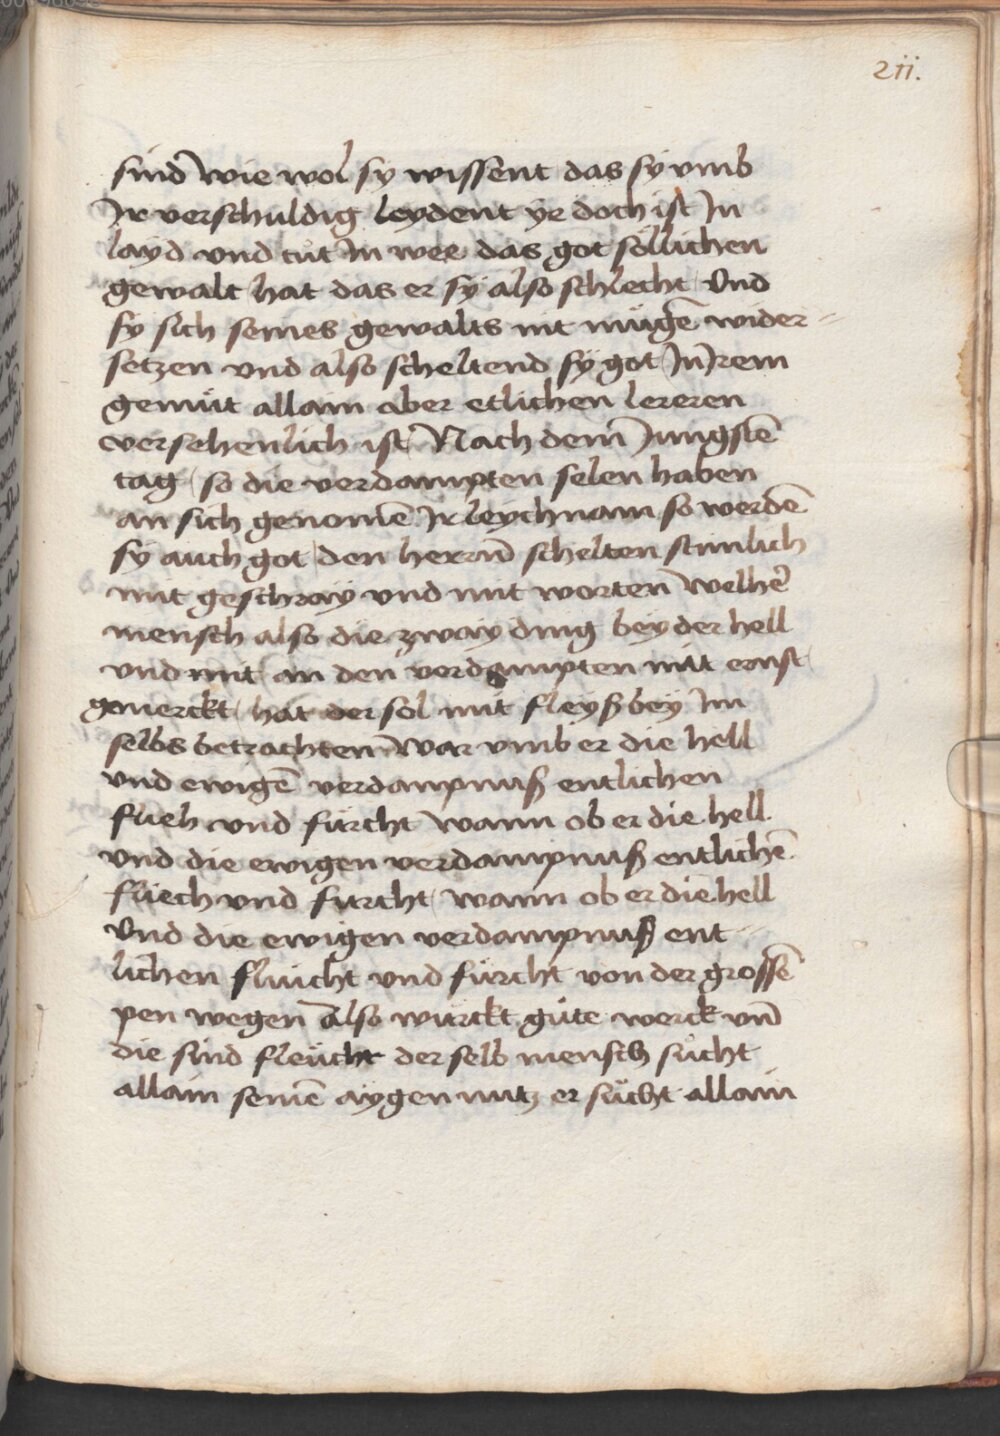 211.
sind wie wol sy wissent das sy vmb
Ir verschuldig leydent yr doch ist In
layd vnd tůt In wee das got söllichen
gewalt hat das er sy also schlecht Vnd
sy sich seines gewalts nit mügē wider=
setzen vnd also scheltend sy got In Irem
gemüt allain aber etlichen lereren
versehenlich ist Nach dem Jungstē
tag so die verdampten selen haben
an sich genomē Ir leychnam so werdē
sy auch got den herrn̄ schelten stimlich
mit geschray vnd mit worten Welher
mensch also die zway ding bey der hell
vnd mit an den verdampten mit ernst
gemerckt hat der sol mit fleyß bey Im
selbs betrachten War vmb er die hell
vnd ewigē verdampnuß entlichen
flieh vnd fürcht wann ob er die hell
vnd die ewigen verdampnuß entlichē
fliech vnd fürcht wann ob er die hell
Vnd die ewigen verdampnuß ent=
lichen fluicht vnd fürcht von der grossē
pen wegen also würckt güte werck vn̄
die sind fleücht der selb mensch sůcht
allain seinē aygen nutz er sůcht allain